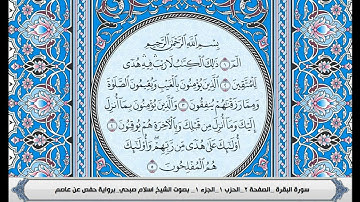 بِسْمِ ٱللَّهِ ٱلرَّحْمَٰنِ ٱلرَّحِيمِ
الٓمٓ ١ ذَٰلِكَ ٱلْكِتَٰبُ لَا رَيْبَ فِيهِ هُدًى
لِّلْمُتَّقِينَ ٢ ٱلَّذِينَ يُؤْمِنُونَ بِٱلْغَيْبِ وَيُقِيمُونَ ٱلصَّلَوٰةَ
وَمِمَّا رَزَقْنَٰهُمْ يُنفِقُونَ ٣ وَٱلَّذِينَ يُؤْمِنُونَ بِمَآ أُنزِلَ
إِلَيْكَ وَمَآ أُنزِلَ مِن قَبْلِكَ وَبِٱلْءَاخِرَةِ هُمْ يُوقِنُونَ ٤
أُو۟لَٰٓئِكَ عَلَىٰ هُدًى مِّن رَّبِّهِمْ وَأُو۟لَٰٓئِكَ
هُمُ ٱلْمُفْلِحُونَ ٥
سورة البقرة_الصفحة ٢_الحزب ١_الجزء ١_ بصوت الشيخ اسلام صبحي_برواية حفص عن عاصم